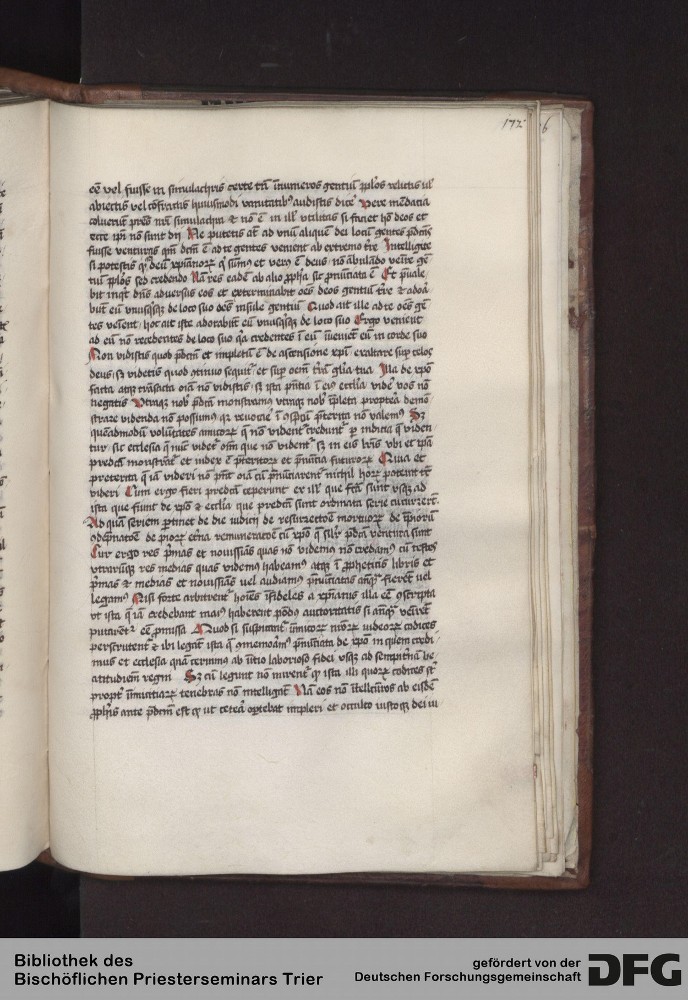 172 6
cē vel fuisse in simulachris certe tm̄ īnumeros gentiū ꝓplōs relictis ul'
abiectis vel cōfractis huiusmodi vanitatib⁹ audistis dicē Vere mēdacia
coluerūt pr̄es nr̄i simulachra et nō ē in ill' utilitas si faciet hō deos et
ecce ip̄i nō sunt dij Ne putetis aūt ad unū aliquē dei locū gentes p̄dictas
fuisse venturas qm̄ dcm̄ ē ad te gentes venient ab extremo tr̄e Intelligite
si potestis qz deū xp̄ianorū q̄ sum⁹ et ver⁹ ē deus nō abulādo venire gē
tiū ꝓplōs sed credendo Nā res eadē ab alio ꝓpha sic p̄nūciata ē Et p̄uale
bit inqt dn̄s adversus eos et exterminabit oēs deos gentiū tr̄e et adora
būt eū unusqsqz de loco suo oēs insule gentiū Quod ait ille ad te oēs gē
tes veīent hoc ait iste adorabūt eū unusqsqz de loco suo Ergo venient
ad eū nō recedentes de loco suo qa credentes ī eū īvenient eū in corde suo
Non vidistis quod p̄dcm̄ et impletū ē de ascensione xpī exaltare sup celos
deus sz videtis quod cōtinuo sequit et sup oem̄ tr̄ā gl̄ia tua Illa de xpo
facta atqz trāsacta oīa nō vidistis sz ista p̄ntia ī eius eccl̄ia videre vos nō
negatis Utraqz nob' p̄dcā monstramus utraqz nob' īpleta propterea demō
strare videnda nō possum⁹ qz revocare ī cōspcm̄ p̄terita nō valem⁹ Sz
quēadmodū volūtates amicorū q̄ nō vident credunt p indicia q̄ viden
tur sic ecclesia q̄ nūc videt oīm que nō vident sz in eis l'ris ubi et ip̄a
predcā monstrat et index ē p̄teritorū et p̄nūcia futurorū Quia et
preterita q̄ iā videri nō pn̄t oīa cū p̄nūciarent nichil horū poterat
videri Cum ergo fieri predcā ceperunt ex ill' que fcā sunt usqz ad
ista que fiunt de xpo et eccl̄ia que predcā sunt ordinata serie cucurrerūt
Ad quā seriem ptinet de die iudicij de resurrectōe mortuorū de īpiorū
dāpnatōe de piorū etn̄a remuneratōe cū xpo q̄ sil'r p̄dcā ventura sunt
Cur ergo res p̄mas et novissīas quas nō videm⁹ nō credam⁹ cū testes
utrarūqz res medias quas videm⁹ habeam⁹ atqz ī ꝓpheticis libris et
p̄mas et medias et novissīas vel audiam⁹ p̄nūciatas anqz fierent vel
legam⁹ Nisi forte arbitrent hoīes īfideles a xp̄ianis illa eē cōscripta
ut ista q̄ iā credebant mai⁹ haberent pond⁹ auctoritatis si anqz venirēt
putarent eē ꝓmissa Quod si suspicant īimicorū nr̄orū iudeorū codices
perscrutent et ibi legāt ista q̄ cōmemoram⁹ p̄nūciata de xpo in quem credi
mus et ecclesia quā cernim⁹ ab īitio laborioso fidei usqz ad sempitn̄a be
atitudinem regni Sz cū legunt nō mirent qz ista illi quorū codices st̄
propt' īimicitiarū tenebras nō intelligunt Nā eos nō ītellcūros ab eisdē
ꝓphis ante p̄dcm̄ est qz ut cetera oportebat impleri et occulto iustoqz dei iu
Bibliothek des
Bischöflichen Priesterseminars Trier
gefördert von der
Deutschen Forschungsgemeinschaft
DFG